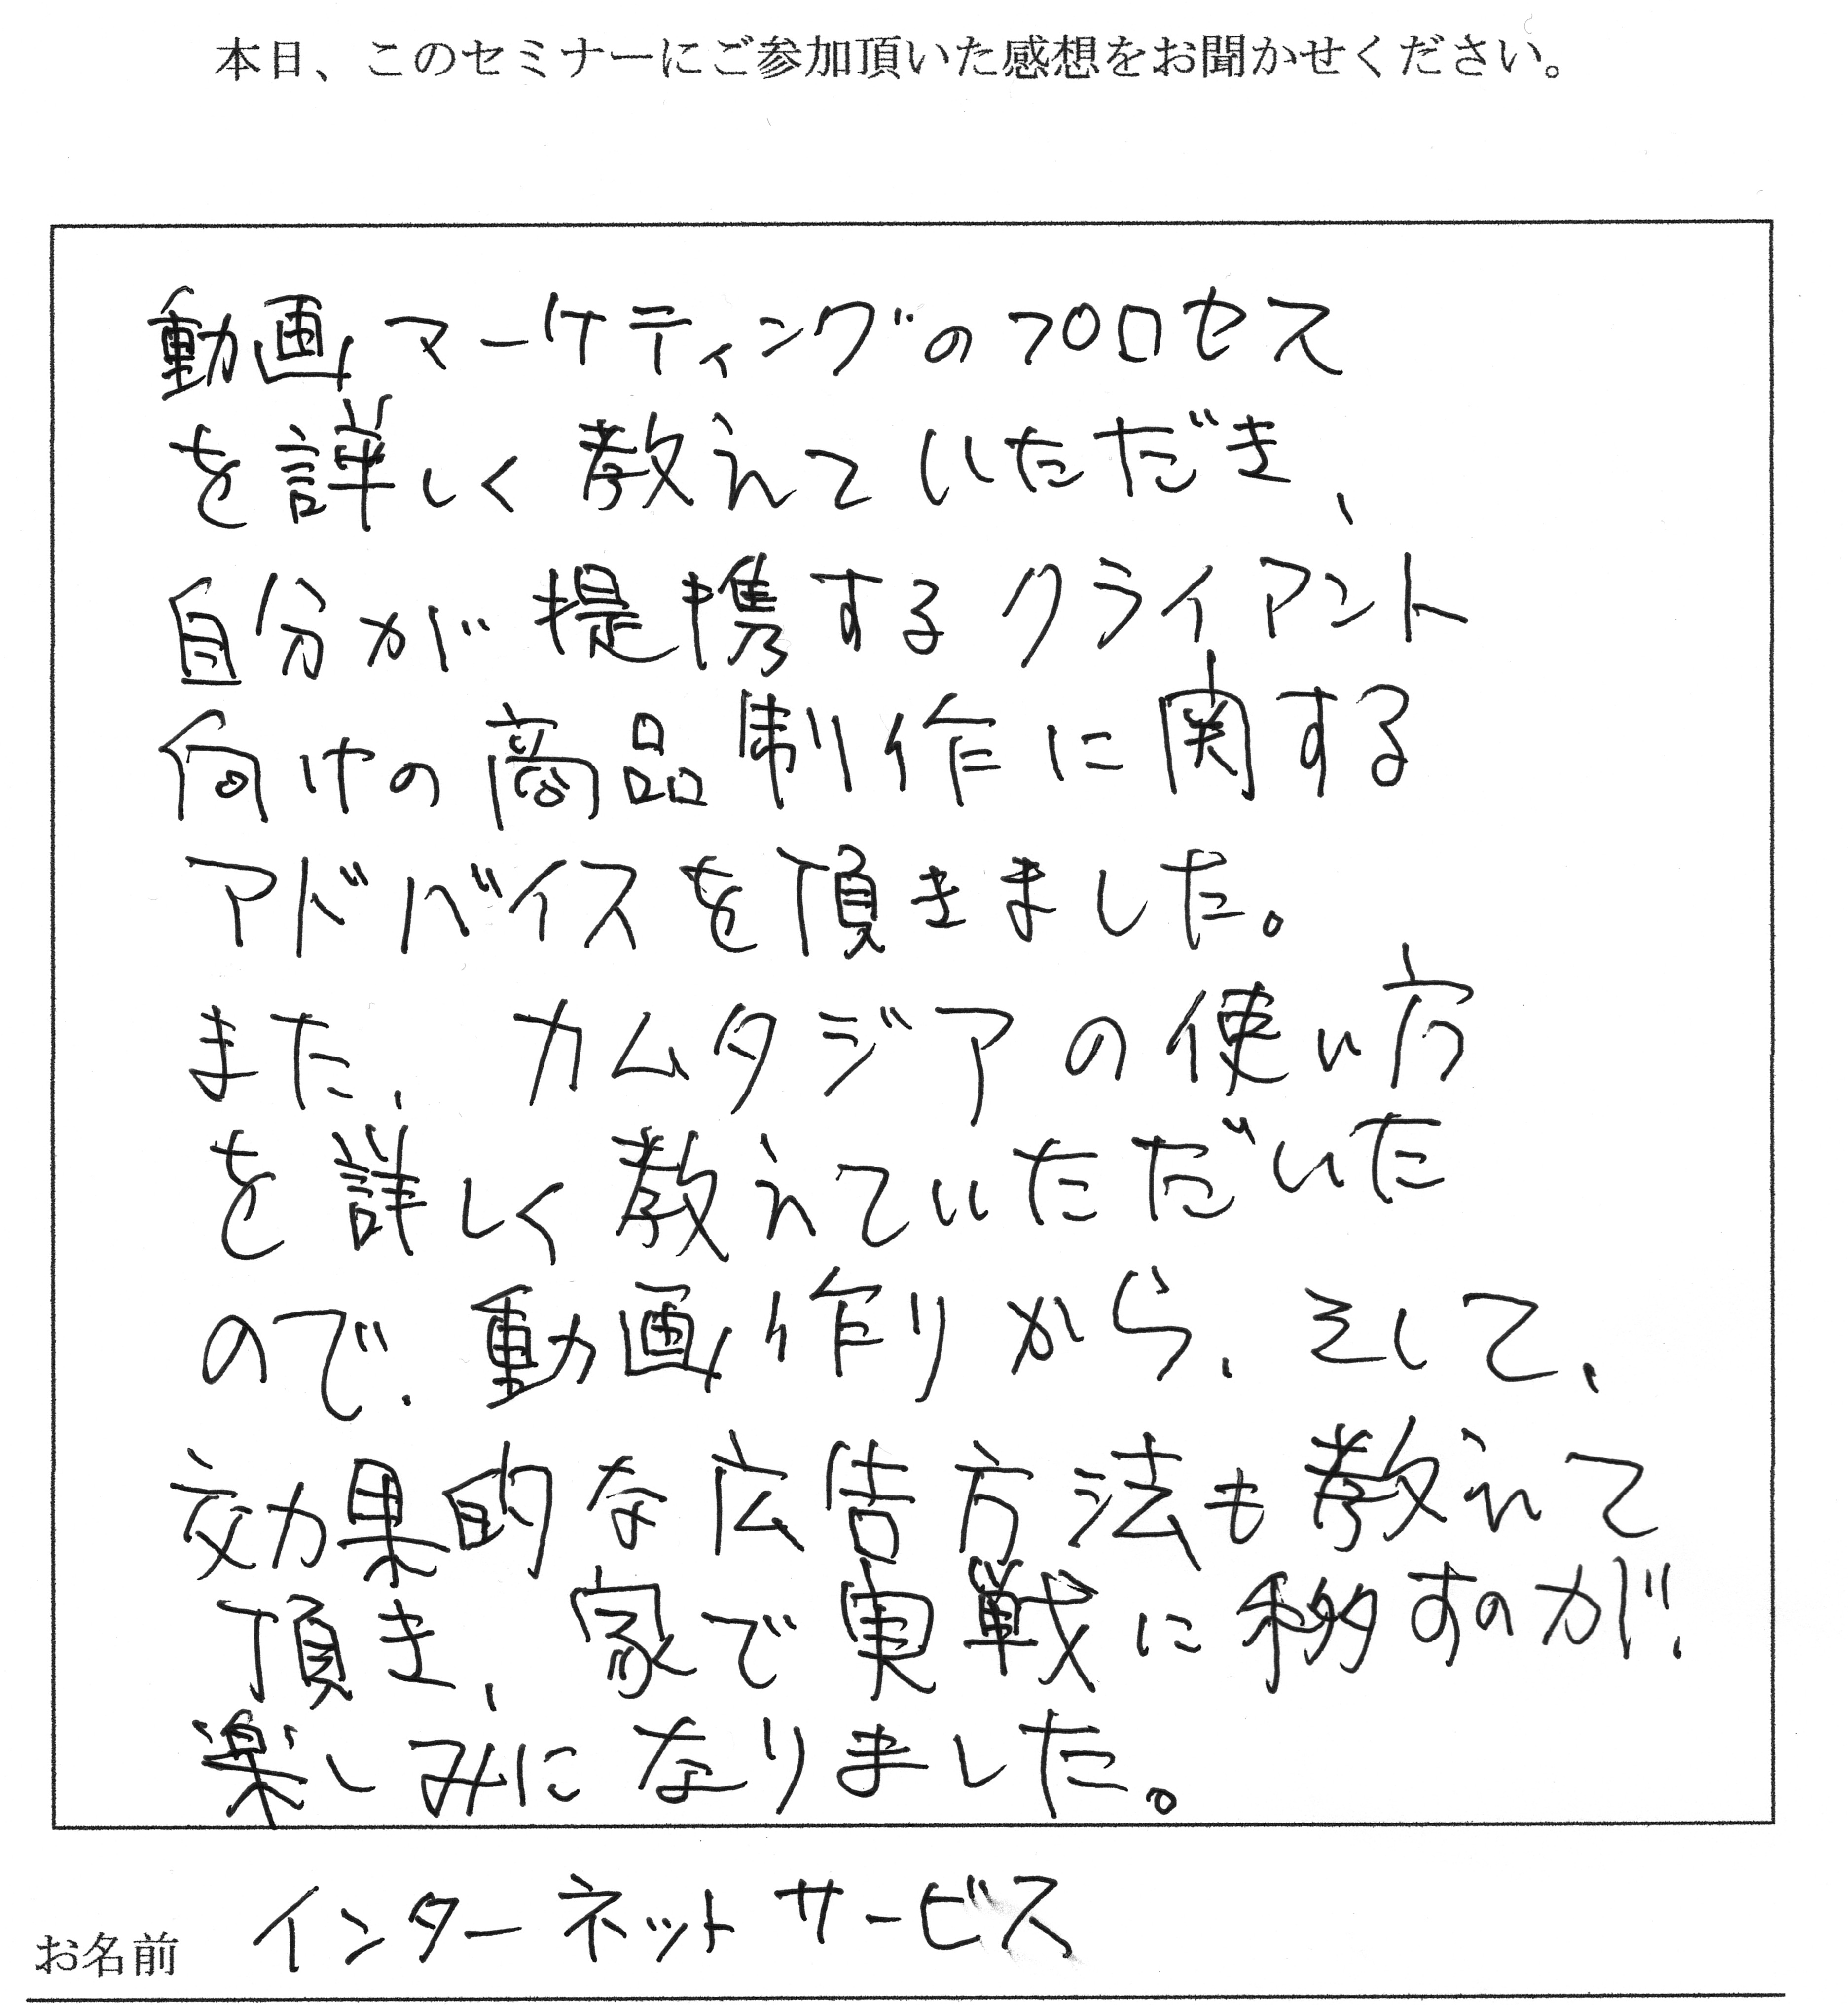 本日、このセミナーにご参加頂いた感想をお聞かせください。
動画マーケティングのプロセス
を詳しく教えていただき、
自分が提携するクライアント
向けの商品制作に関する
アドバイスを頂きました。
また、カムタジアの使い方
を詳しく教えていただいた
ので、動画作りから、そして、
効果的な広告方法も教えて
頂き、家で実戦に移すのが、
楽しみになりました。
お名前 インターネットサービス